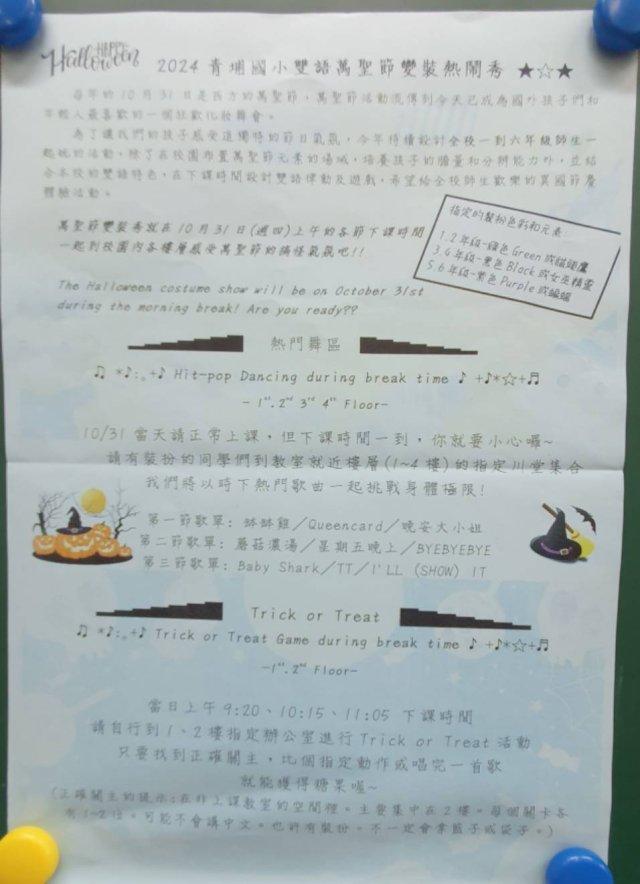 HAPPY
Halloween
2024 青埔國小雙語萬聖節變裝熱鬧秀 ★☆★
每年的10月31日是西方的萬聖節，萬聖節活動流傳到今天已成為國外孩子們和
年輕人最喜歡的一個狂歡化妝舞會。
為了讓我們的孩子感受這獨特的節日氣氛，今年持續設計全校一到六年級師生一
起玩的活動，除了在校園布置萬聖節元素的場域，培養孩子的膽量和分辨能力外，並結
合本校的雙語特色，在下課時間設計雙語律動及遊戲，希望給全校師生歡樂的異國節慶
體驗活動。
萬聖節變裝秀就在10月31日(週四)上午的各節下課時間
一起到校園內各樓層感受萬聖節的搞怪氣氛吧!!
指定的裝扮色彩和元素:
1.2年級-綠色Green或貓頭鷹
3.4年級-黑色Black或女巫精靈
5.6年級-紫色Purple或蝙蝠
The Halloween costume show will be on October 31st
during the morning break! Are you ready??
熱門舞區
♫ *♪:｡+♪ Hit-pop Dancing during break time ♪ +♪*☆+♬
- 1st.2nd 3rd 4th Floor-
10/31 當天請正常上課，但下課時間一到，你就要小心囉~
請有裝扮的同學們到教室就近樓層(1~4樓)的指定川堂集合
我們將以時下熱門歌曲一起挑戰身體極限!
第一節歌單: 缽缽雞／Queencard／晚安大小姐
第二節歌單: 蘑菇濃湯／星期五晚上／BYEBYEBYE
第三節歌單: Baby Shark／TT／I'LL (SHOW) IT
Trick or Treat
♫ *♪:｡+♪ Trick or Treat Game during break time ♪ +♪*☆+♬
-1st.2nd Floor-
當日上午9:20、10:15、11:05 下課時間
請自行到1、2樓指定辦公室進行Trick or Treat活動
只要找到正確關主，比個指定動作或唱完一首歌
就能獲得糖果喔~
(正確關主的提示:在非上課教室的空間裡。主要集中在2樓。每個關卡各
有1~2位。可能不會講中文。也許有裝扮。不一定會拿籃子或袋子。)